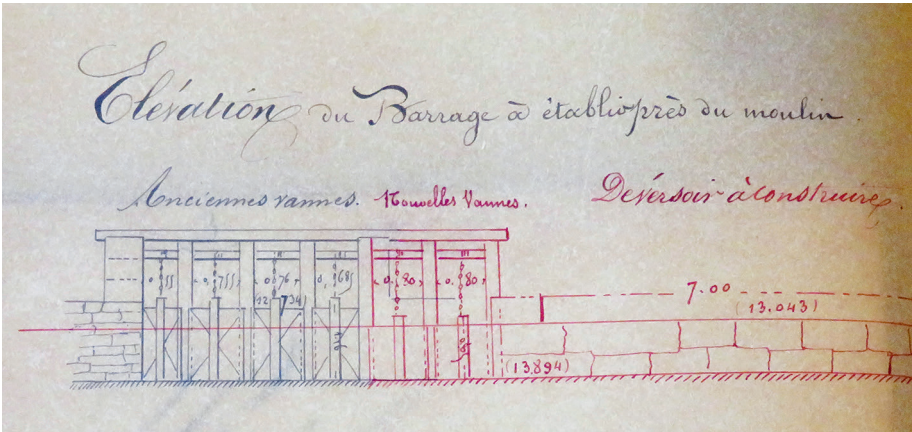 Elévation du Barrage à établir près du moulin.
Anciennes vannes. Nouvelles Vannes. Déversoir à construire.
0,755 0,76 0,685 0,80 0,80
7.00
(13.043)
(13.894)